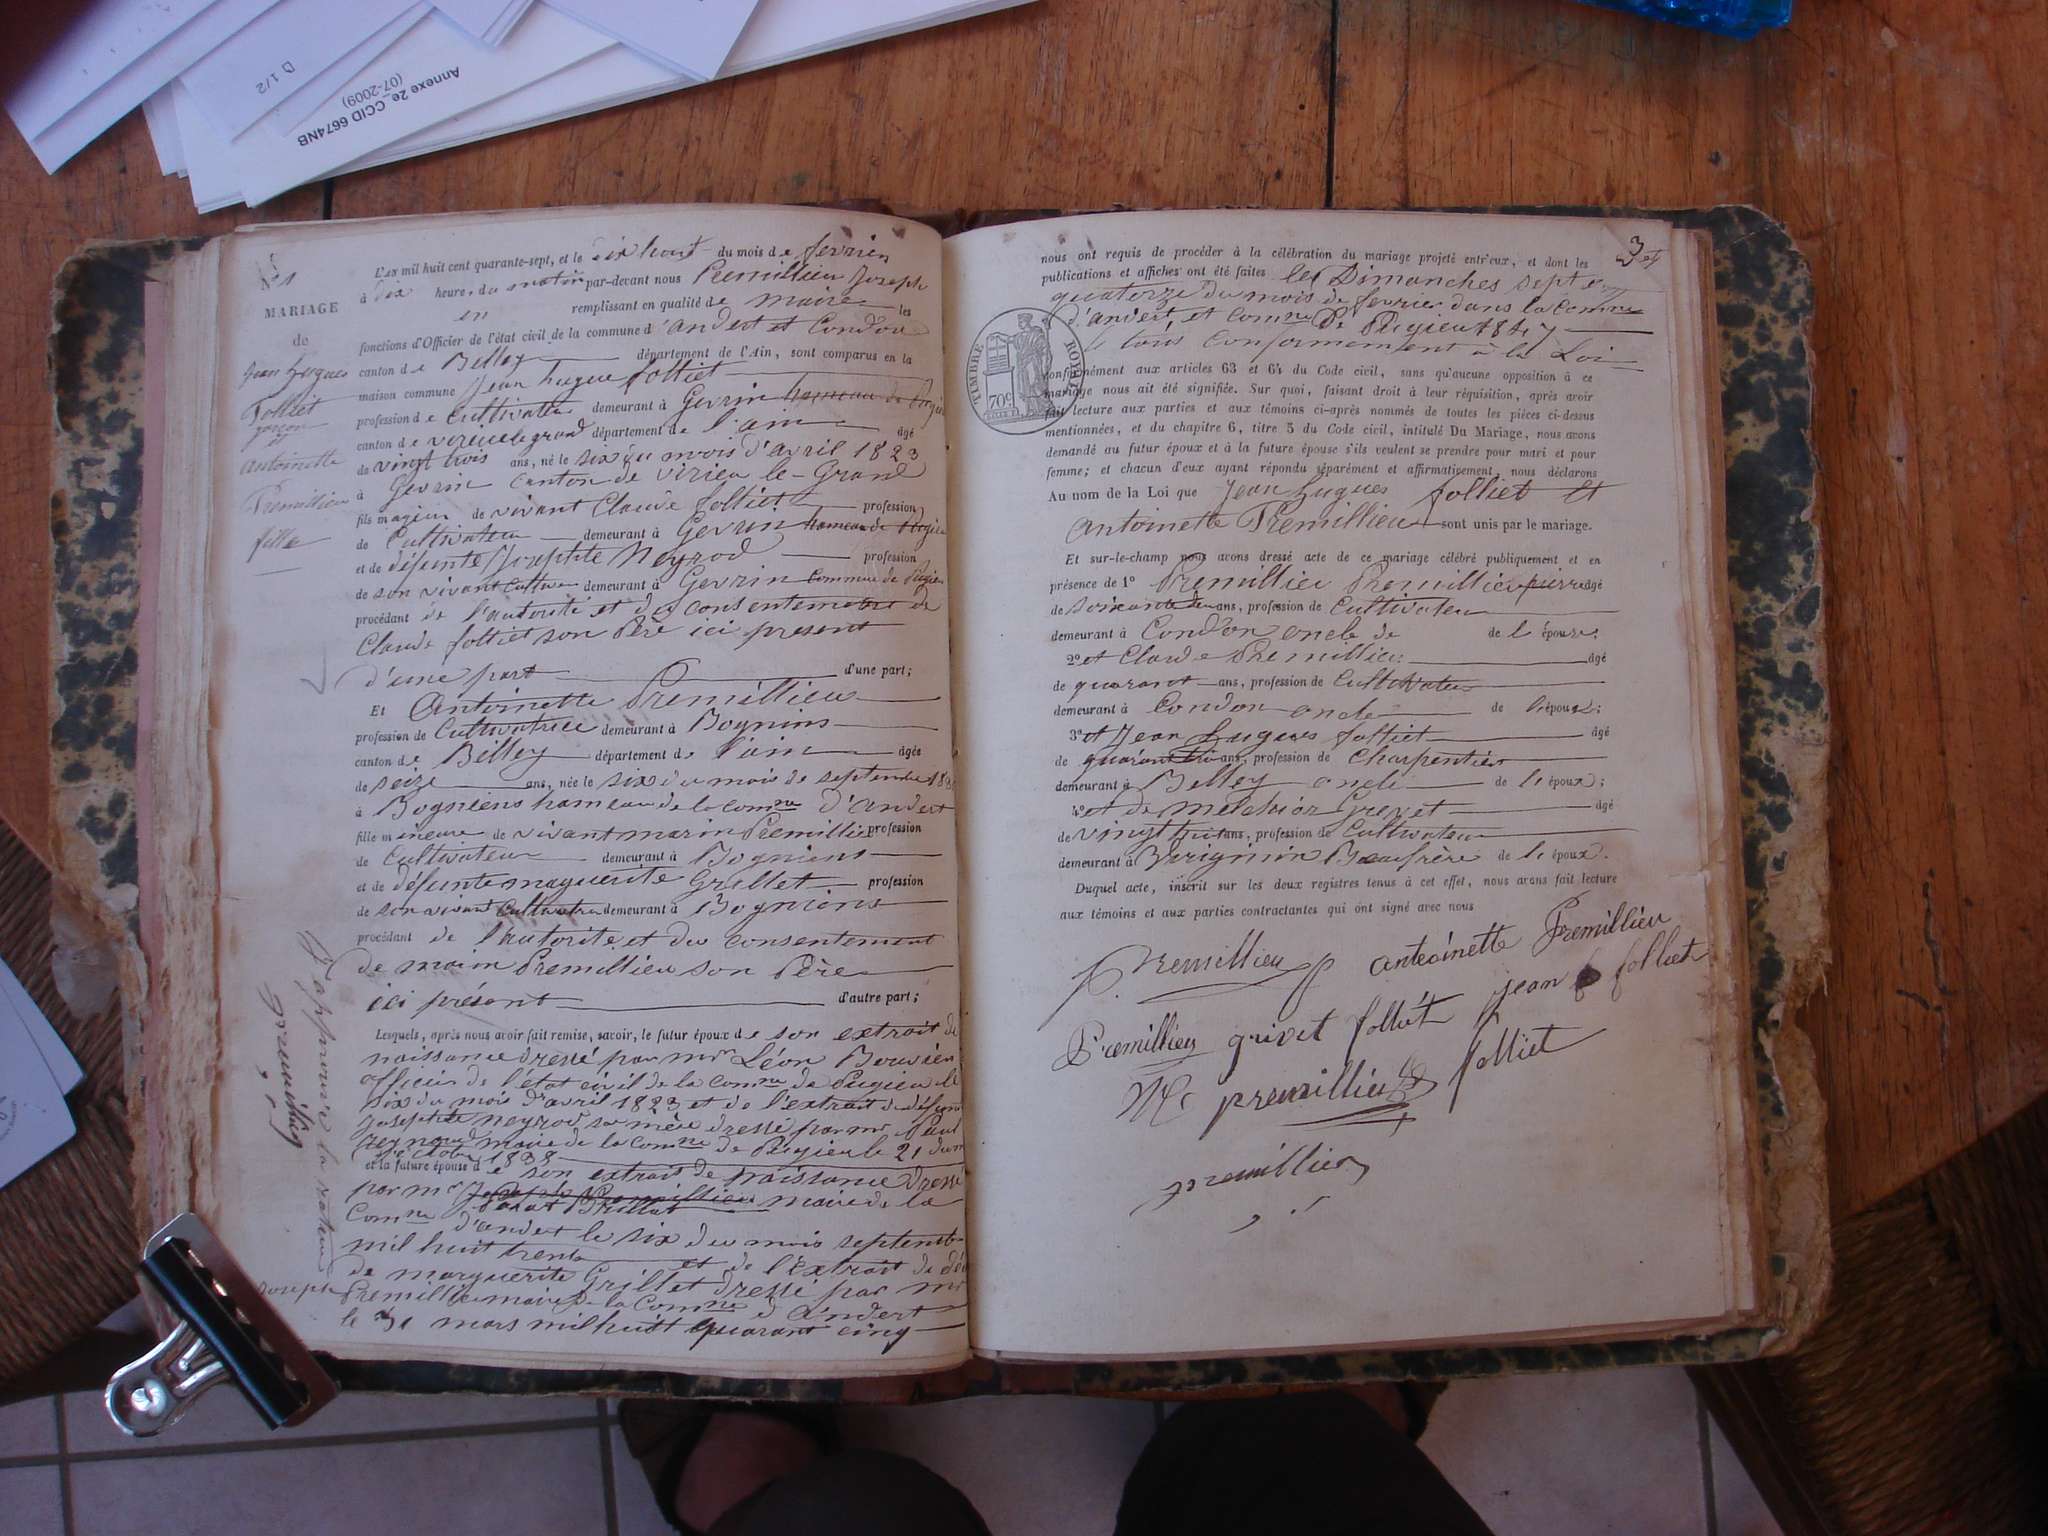 D 1/2
Annexe 2e_CCID 6674NB
(07-2009)
No 1
MARIAGE
de
Jean hugues
Folliet
garçon
et
antoinette
Premillieu
fille
L'AN mil huit cent quarante-sept, et le dix huit du mois de fevrier
à dix heures du matin par-devant nous Premillieu Joseph
en remplissant en qualité de maire les
fonctions d'Officier de l'état civil de la commune d'andert et Condon
canton de Belley département de l'Ain, sont comparus en la
maison commune Jean hugue folliet
profession de Cultivateur demeurant à Gevrin hameau de Pugieu
canton de virieu le grand département de l'ain âgé
de vingt trois ans, né le six du mois d'avril 1823
à Gevrin Canton de Virieu le-Grand
fils majeur de vivant Claude folliet profession
de Cultivateur demeurant à Gevrin hameau de Pugieu
et de défunte Josephte Neyrod profession
de son vivant Cultivatr demeurant à Gevrin Commune de Pugieu
procédant de l'autorité et du consentement de
Claude folliet son Père ici présent
d'une part d'une part;
Et Antoinette Premillieu
profession de Cultivatrice demeurant à Bognins
canton de Belley département de l'ain âgée
de seize ans, née le six du mois de septembre
à Bogniens hameau de la Comne d'andert
fille mineure de vivant marin Premillieu profession
de Cultivateur demeurant à Bogniens
et de défunte maguerite Grillet profession
de son vivant Cultivatr demeurant à Bogniens
procédant de l'autorité et du consentement
de marin Premillieu son Père
ici présent d'autre part;
Lesquels, après nous avoir fait remise, savoir, le futur époux de son extrait de
naissance dressé par mr Léon Bouvier
officier de l'état civil de la Comne de Pugieu le
six du mois d'avril 1823 et de l'extrait de
Josephte neyrod sa mère dressé par mr Paul
reynaud maire de la Comne de Pugieu le 21 du
1838
et la future épouse de son extrait de naissance dressé
par mr Joseph Premillieu Brillat maire de la
Comne d'andert le six du mois septembre
mil huit trente et de l'extrait de
de marguerite Grillet dressé par mr
Joseph Premillieu maire de la Comne d'Andert
le 31 mars mil huit quarant cinq
J'approuve la rature
premillieu
3
nous ont requis de procéder à la célébration du mariage projeté entr'eux, et dont les
publications et affiches ont été faites les Dimanches sept et
quatorze du mois de fevrier dans la Comne
d'andert et Comne de Pugieu 1847
le tous Conformement à la Loi
TIMBRE ROYAL
70c
conformément aux articles 63 et 64 du Code civil, sans qu'aucune opposition à ce
mariage nous ait été signifiée. Sur quoi, faisant droit à leur réquisition, après avoir
fait lecture aux parties et aux témoins ci-après nommés de toutes les pièces ci-dessus
mentionnées, et du chapitre 6, titre 5 du Code civil, intitulé Du Mariage, nous avons
demandé au futur époux et à la future épouse s'ils veulent se prendre pour mari et pour
femme; et chacun d'eux ayant répondu séparément et affirmativement, nous déclarons
Au nom de la Loi que Jean hugues folliet et
antoinette Premillieu sont unis par le mariage.
Et sur-le-champ nous avons dressé acte de ce mariage célébré publiquement et en
présence de 1o Premillieu Premillieu pierre âgé
de soixante ans, profession de Cultivateur
demeurant à Condon oncle de de l'épouse.
2o et Claude Premillieu âgé
de quarant ans, profession de Cultivateur
demeurant à Condon oncle de l'épouse;
3o et Jean hugues folliet âgé
de quarant ans, profession de Charpentier
demeurant à Belley oncle de l'époux;
4o et de melchior Grevet âgé
de vingt huit ans, profession de Cultivateur
demeurant à Virignin Beaufrère de l'époux.
Duquel acte, inscrit sur les deux registres tenus à cet effet, nous avons fait lecture
aux témoins et aux parties contractantes qui ont signé avec nous
P. Premillieu antoinette Premillieu
Premillieu grivet folliet jean folliet
Mc premillieu folliet
premillieu